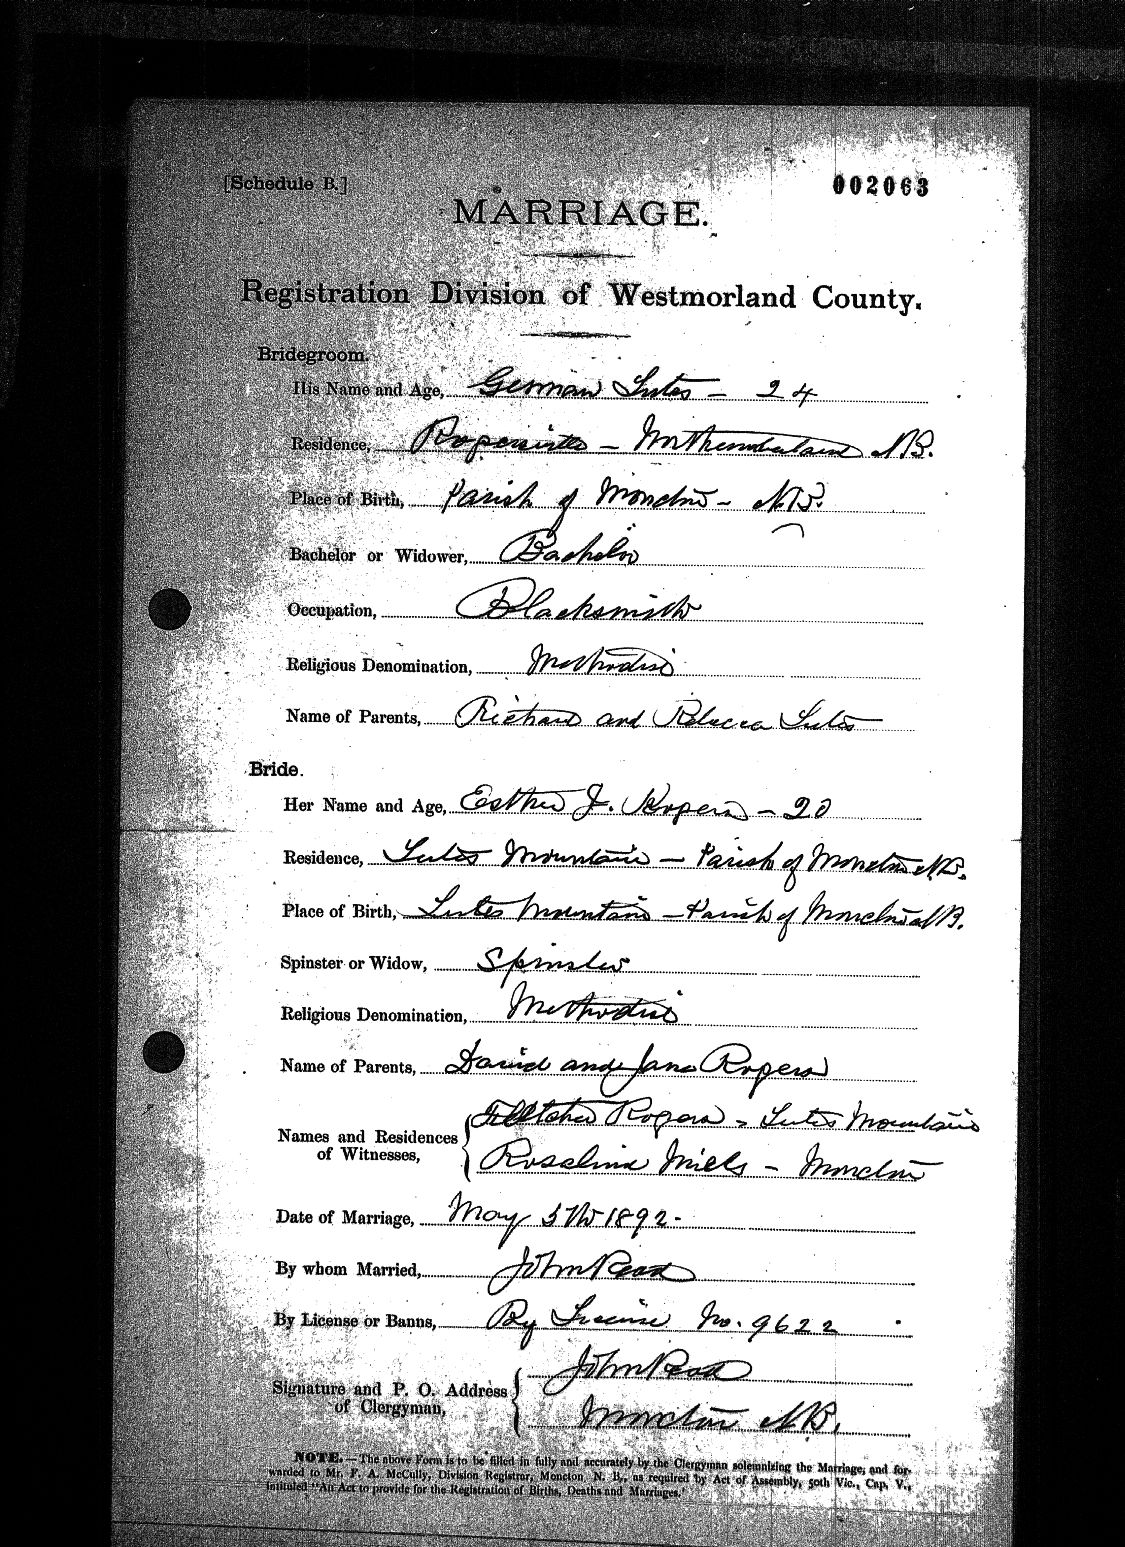 [Schedule B.]
002063
MARRIAGE.
Registration Division of Westmorland County.
Bridegroom.
His Name and Age, German Lutes - 24
Residence, Rogersville - Northumberland N.B.
Place of Birth, Parish of Moncton - N.B.
Bachelor or Widower, Bachelor
Occupation, Blacksmith
Religious Denomination, Methodist
Name of Parents, Richard and Rebecca Lutes
Bride.
Her Name and Age, Esther J. Rogers - 20
Residence, Lutes Mountain - Parish of Moncton N.B.
Place of Birth, Lutes Mountain - Parish of Moncton N.B.
Spinster or Widow, Spinster
Religious Denomination, Methodist
Name of Parents, David and Jane Rogers
Names and Residences of Witnesses, Fletcher Rogers - Lutes Mountain
Rosalina Mills - Moncton
Date of Marriage, May 5th 1892.
By whom Married, John Read
By License or Banns, By License No. 9622
Signature and P. O. Address of Clergyman, John Read
Moncton N.B.
NOTE.—The above Form is to be filled in fully and accurately by the Clergyman solemnizing the Marriage; and for-
warded to Mr. F. A. McCully, Division Registrar, Moncton, N. B., as required by Act of Assembly, 50th Vic., Cap. V.,
intituled "An Act to provide for the Registration of Births, Deaths and Marriages."